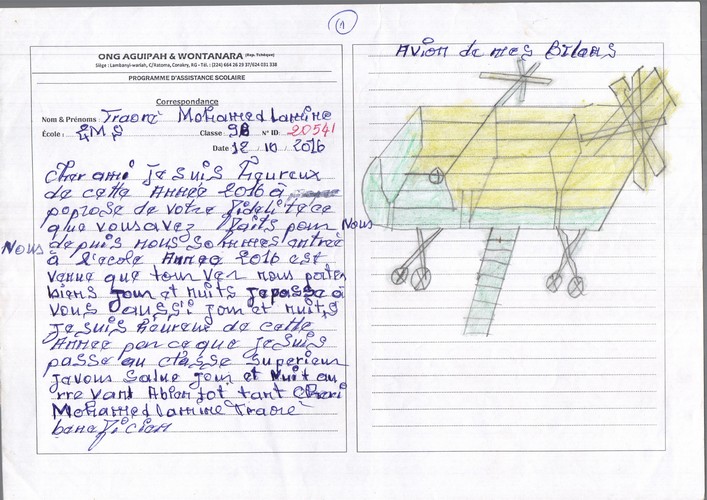 1
ONG AGUIPAH & WONTANARA (Rép. Tchèque)
Siège : Lambanyi-wariah, C/Ratoma, Conakry, RG - Tél. : (224) 664 26 29 37/624 031 338
PROGRAMME D'ASSISTANCE SCOLAIRE
Correspondance
Nom & Prénoms : Traoré Mohamed Lamine
École : Classe : N° ID: 20541
Date 12 / 10 / 2016
Cher ami je suis Heureux
de cette Année 2016 à
poprose de votre Fidelité ce
que vous avez Faits pour Nous
Nous depuis nous sommes antrée
à l'école Année 2016 est
venue que tour ver nous porter
biens jour et nuits je passe à
vous aussi jour et nuits
je suis heureux de cette
Année par ce que je suis
passe au classe superieur
javous salue jour et Nuit au
rre vant Abien tot tant Cheri
Mohamed Lamine Traoré
bene Ficien
Avion de mes